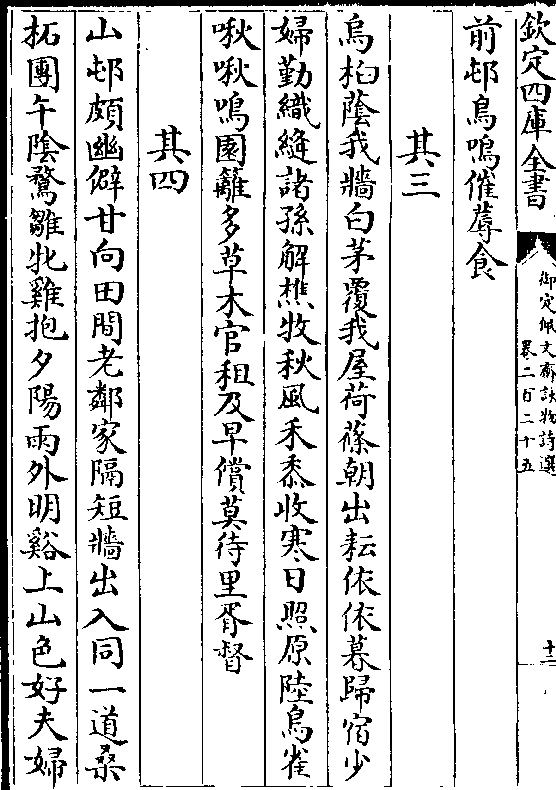 欽定四庫全書
御定佩文齋詠物詩選
卷二百二十五
十三
前邨鳥鳴催蓐食
其三
烏桕蔭我牆白茅覆我屋荷蓧朝出耘依依暮歸宿少
婦勤織縫諸孫解樵牧秋風禾黍收寒日照原陸鳥雀
啾啾鳴園籬多草木官租及早償莫待里胥督
其四
山邨頗幽僻甘向田間老鄰家隔短牆出入同一道桑
柘團午陰鶩雛牝雞抱夕陽雨外明谿上山色好夫婦